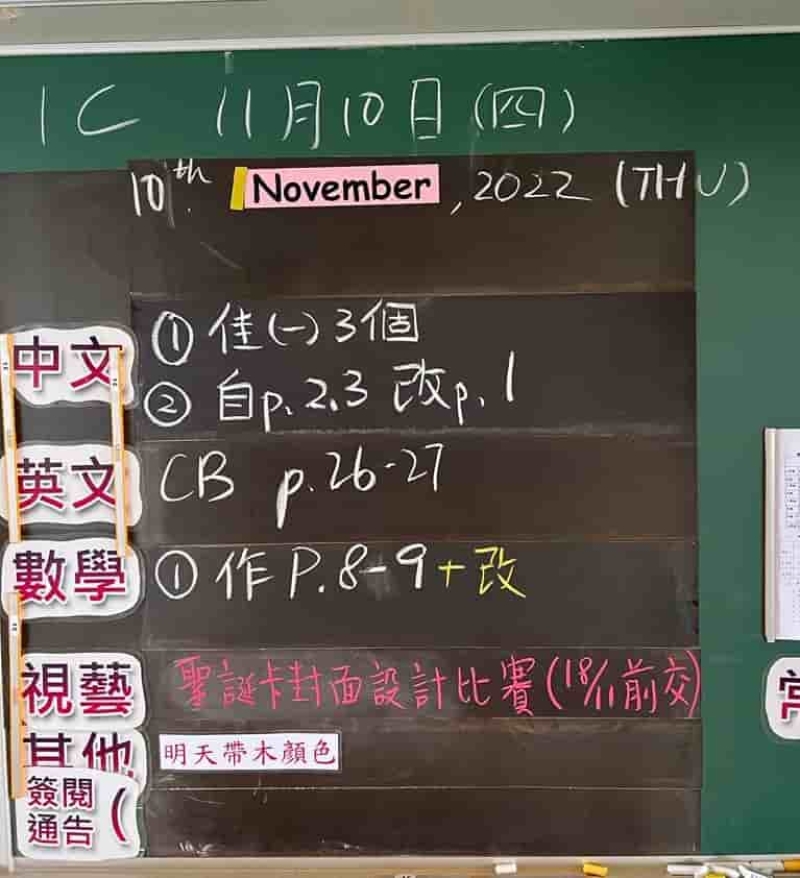 1C 11月10日(四)
10th November, 2022 (THU)
中文 ① 佳(一) 3個
② 自p. 2.3 改p. 1
英文 CB p.26-27
數學 ① 作 P.8-9+改
視藝 聖誕卡封面設計比賽(18/11前交)
其他 明天帶木顏色
簽閱 (
通告